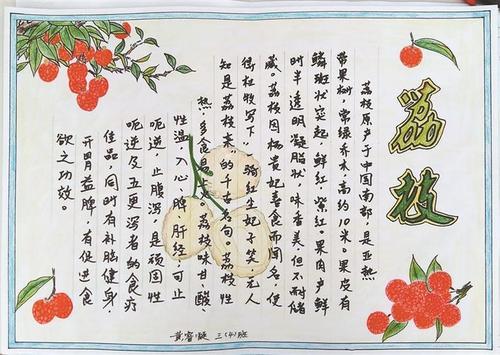 荔枝
荔枝原产于中国南部，是亚热
带果树，常绿乔木，高约10米。果皮有
鳞斑状突起，鲜红，紫红。果肉产鲜
时半透明凝脂状，味香美，但不耐储
藏。荔枝因杨贵妃喜食而闻名，使
得杜牧写下“一骑红尘妃子笑，无人
知是荔枝来”的千古名句。荔枝性
热，多食易上火。荔枝味甘、酸、
性温，入心、脾、肝经；可止
呃逆，止腹泻，是顽固性
呃逆及五更泻者的食疗
佳品，同时有补脑健身，
开胃益脾，有促进食
欲之功效。
三(4)班